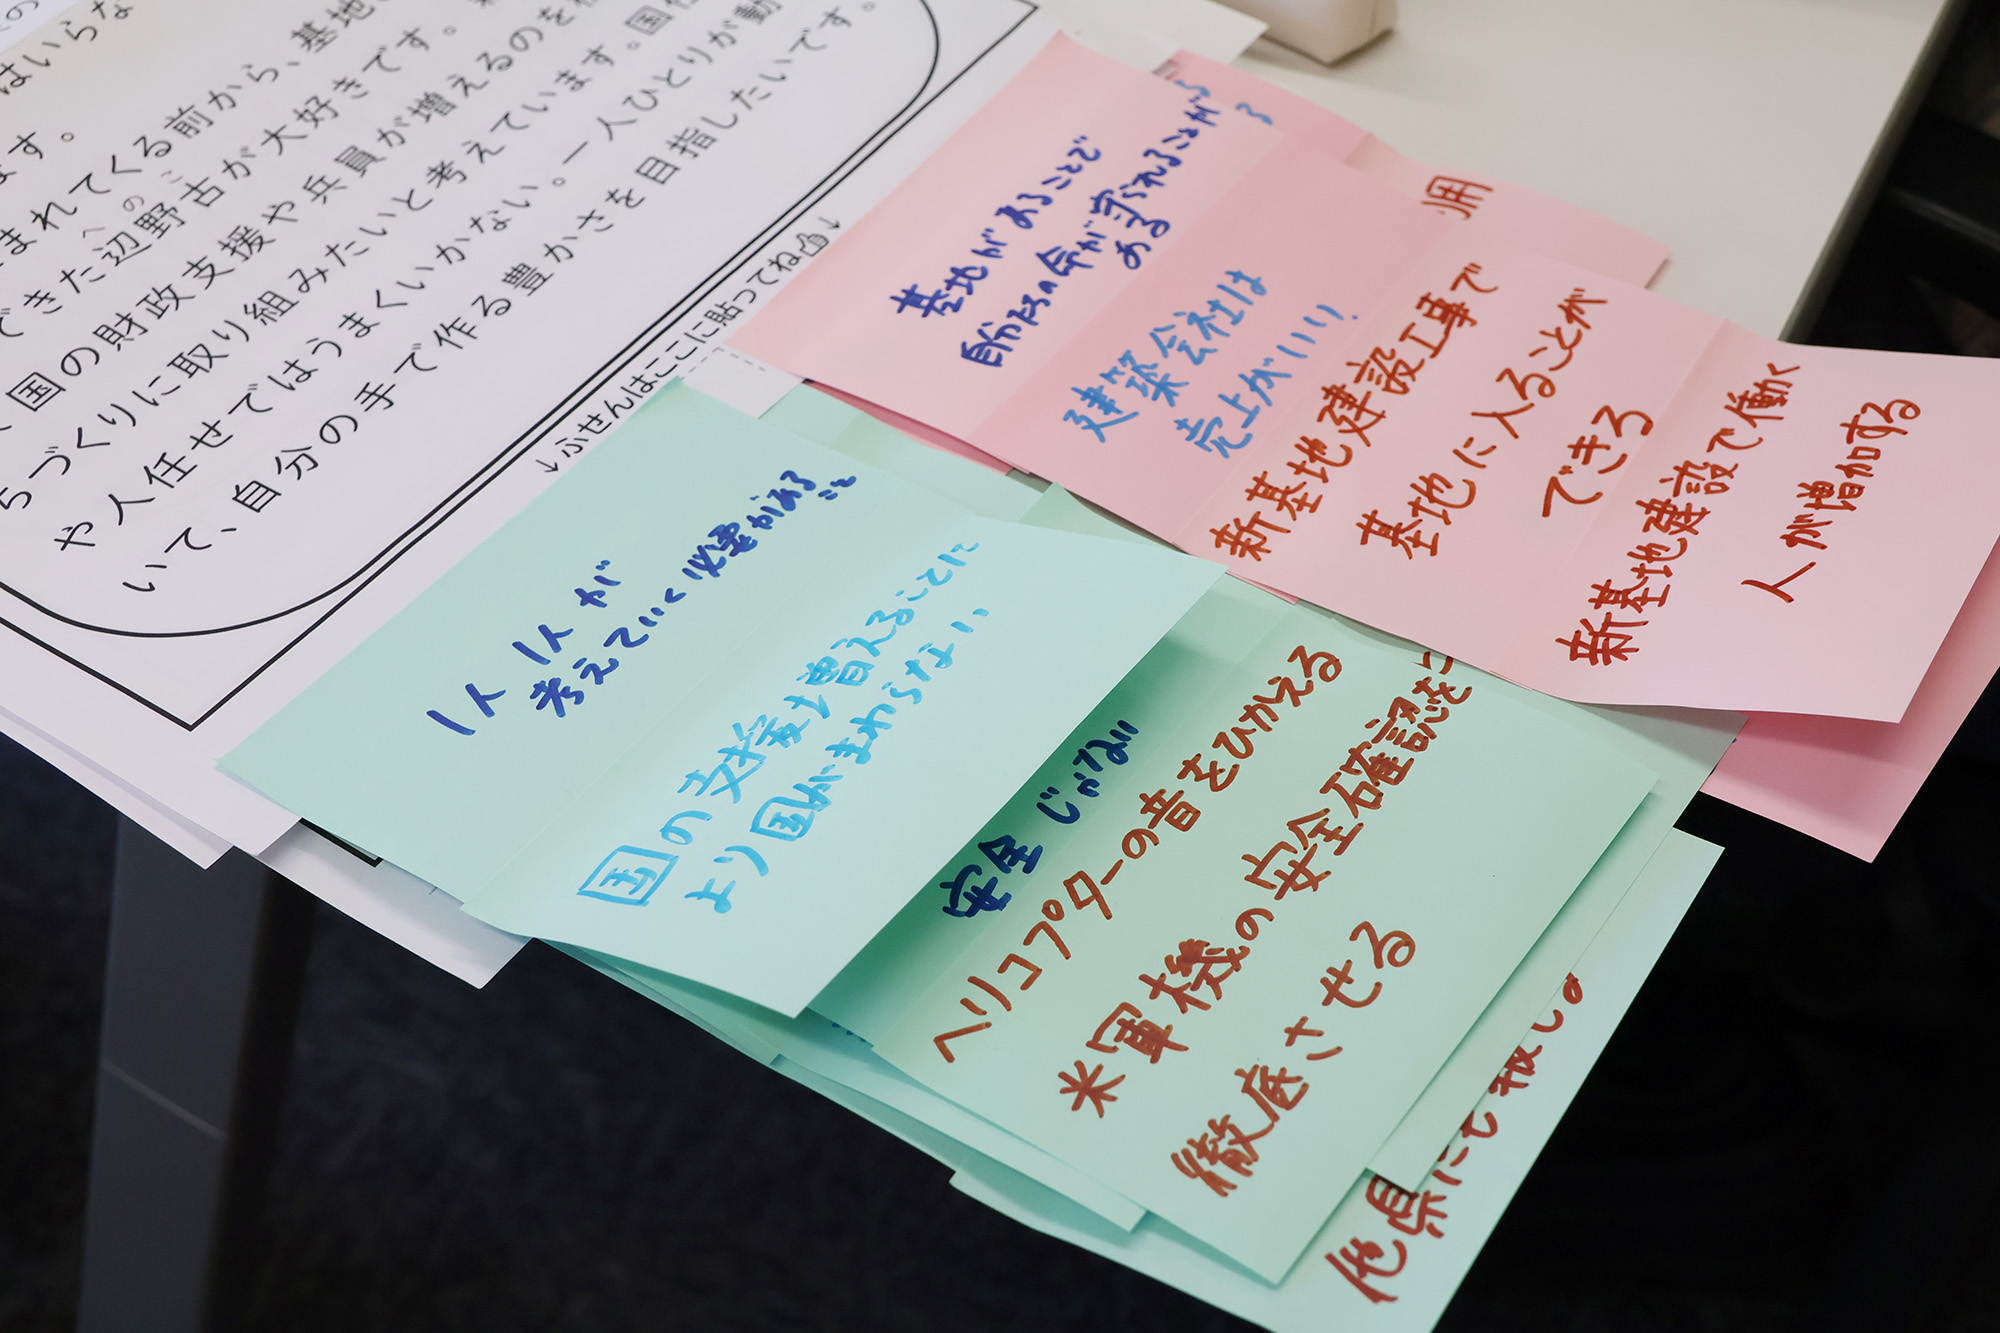 はいらな
ます。
まれてくる前から、基地
できた辺野古が大好きです。
へのこ
国の財政支援や兵員が増えるのを
ちづくりに取り組みたいと考えています。国
や人任せではうまくいかない。一人ひとりが動
いて、自分の手で作る豊かさを目指したいです。
↓ふせんはここに貼ってね↓
基地があることで
自分たちの命が守られることが
ある
建築会社は
売上がいい
用
新基地建設工事で
基地に入ることが
できる
新基地建設で働く
人が増加する
1人1人が
考えていく必要がある
こと
国の支援も増えることに
より国がまわらない
安全じゃない
ヘリコプターの音をひかえる
米軍機の安全確認を
徹底させる
他県にも